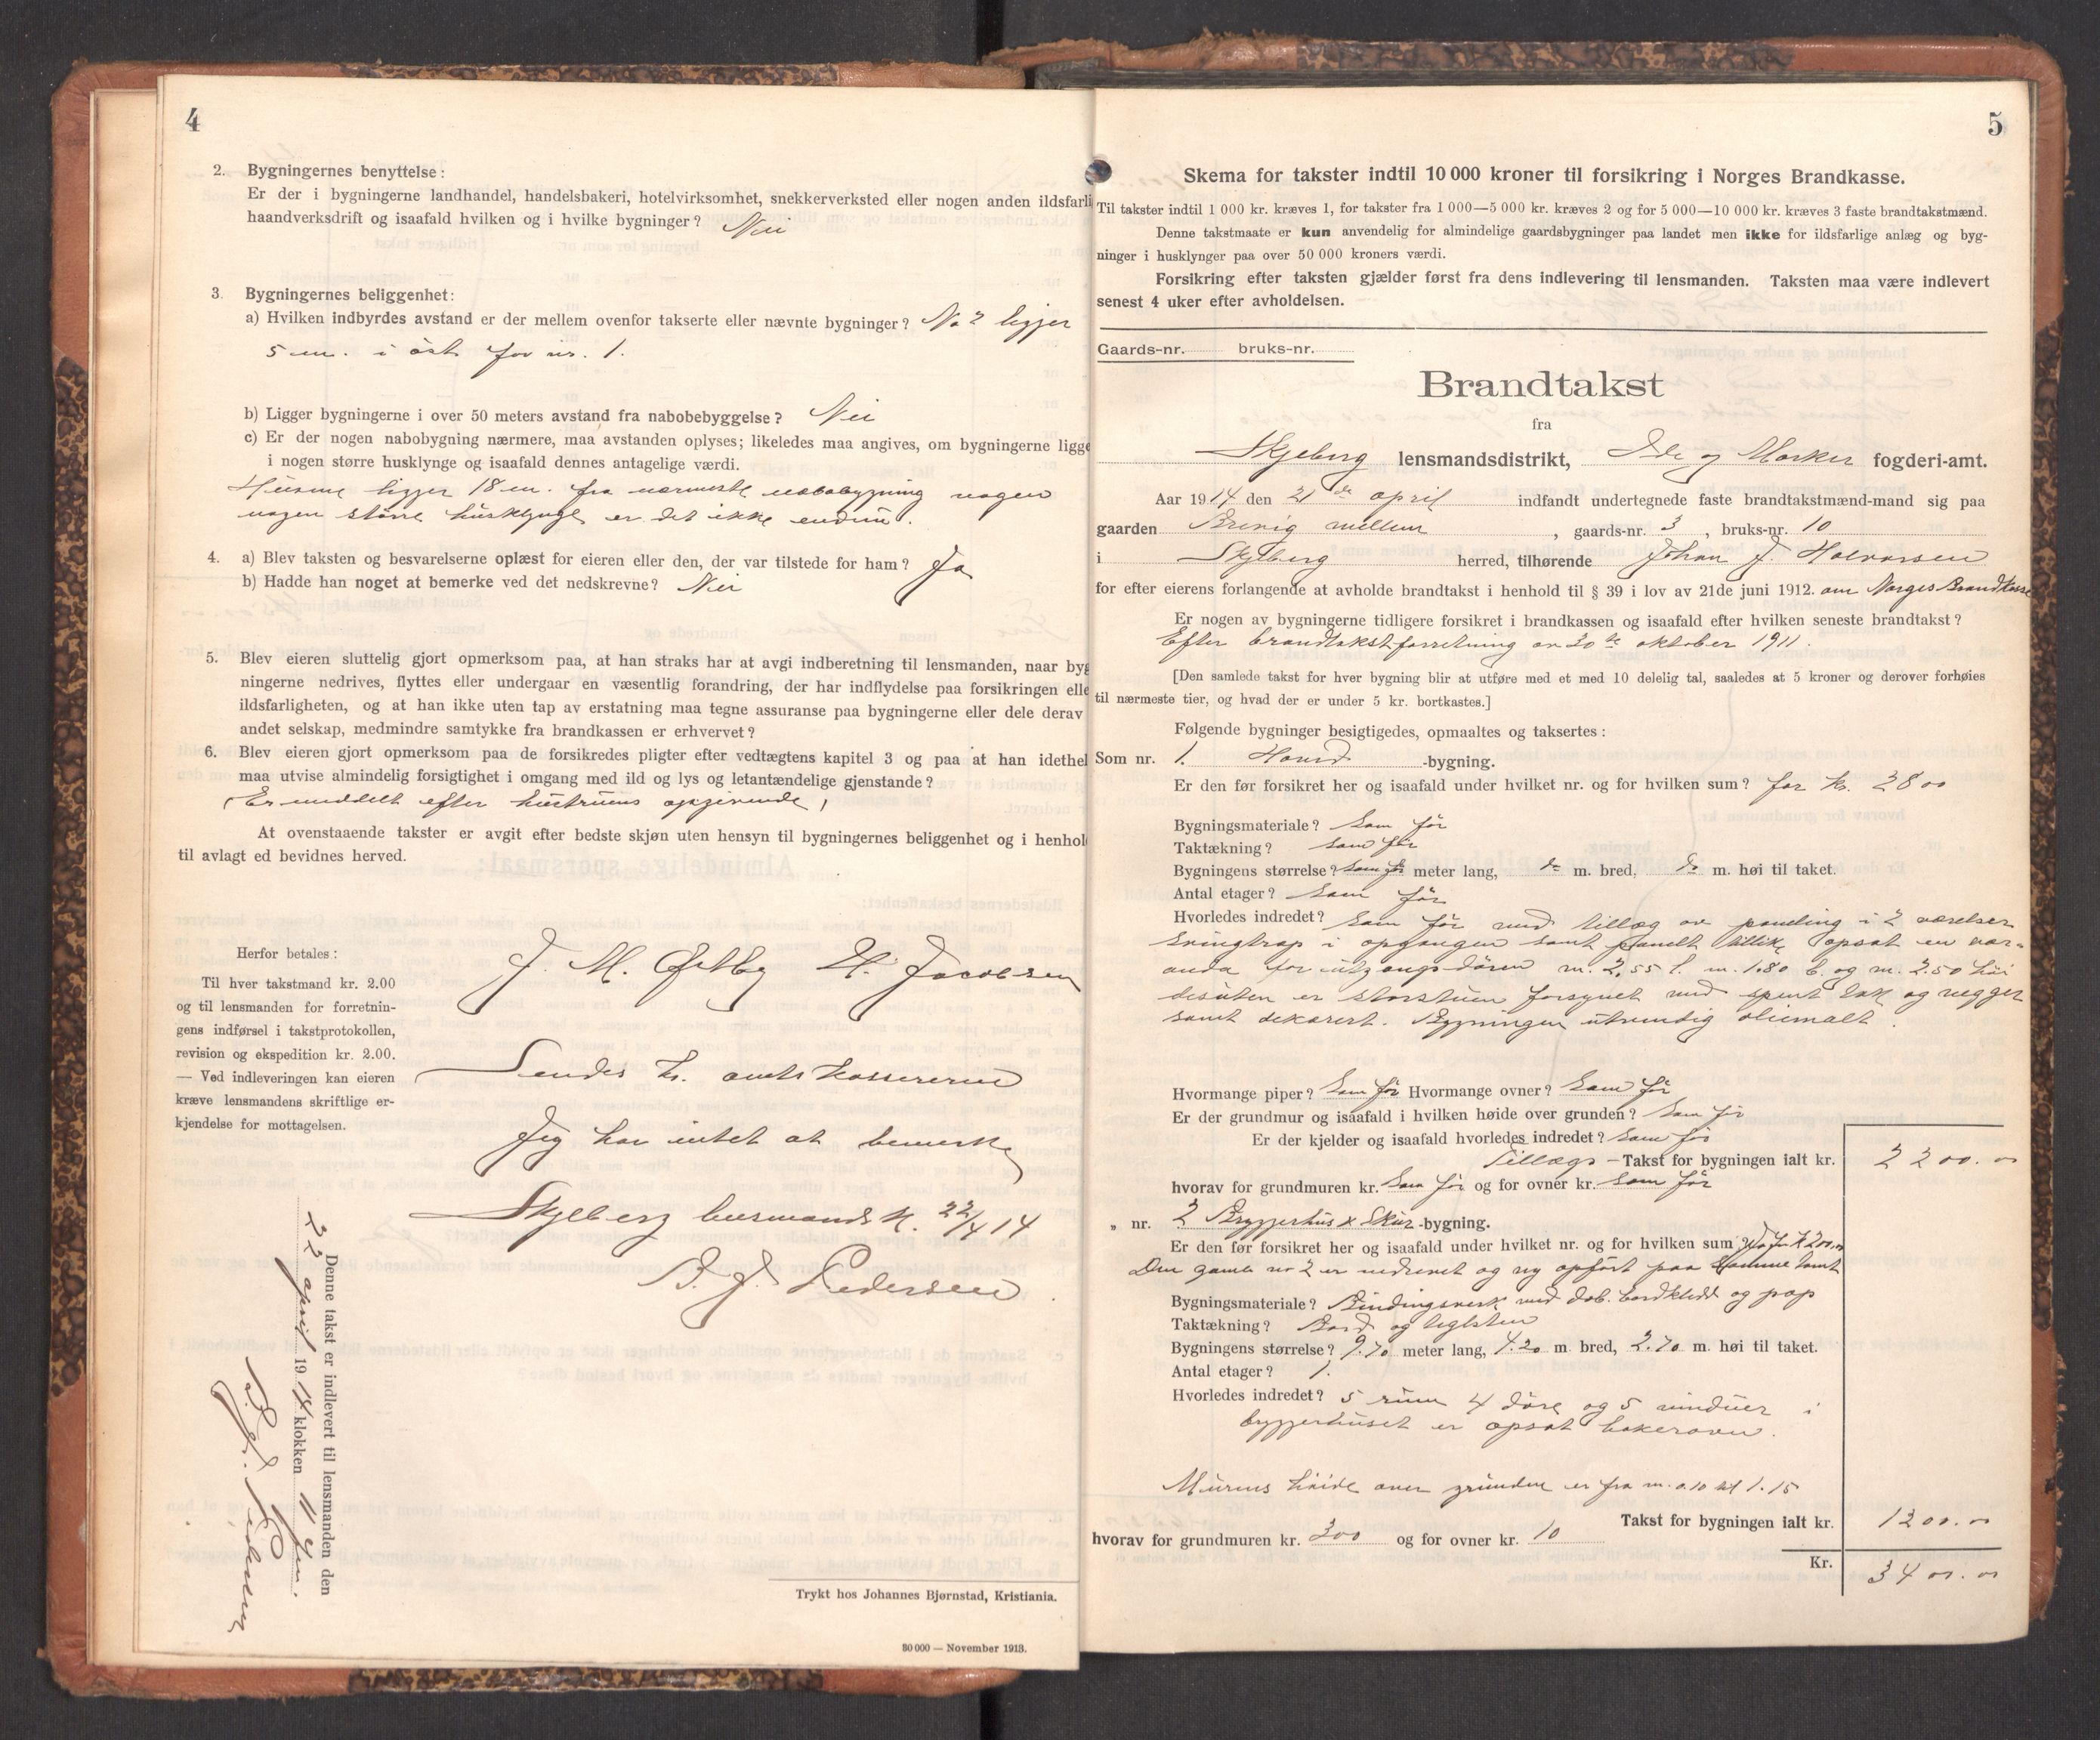 4
2. Bygningernes benyttelse:
Er der i bygningerne landhandel, handelsbakeri, hotelvirksomhet, snekkerverksted eller nogen anden ildsfarli
haandverksdrift og isaafald hvilken og i hvilke bygninger? Nei
3. Bygningernes beliggenhet:
a) Hvilken indbyrdes avstand er der mellem ovenfor takserte eller nævnte bygninger? No 2 ligger
5 m. i øst for nr. 1.
b) Ligger bygningerne i over 50 meters avstand fra nabobebyggelse? Nei
c) Er der nogen nabobygning nærmere, maa avstanden oplyses; likeledes maa angives, om bygningerne ligge
i nogen større husklynge og isaafald dennes antagelige værdi.
Husene ligger 18 m. fra nærmeste nabobygning nogen
nogen større husklynge er det ikke endnu.
4. a) Blev taksten og besvarelserne oplæst for eieren eller den, der var tilstede for ham? Ja
b) Hadde han noget at bemerke ved det nedskrevne? Nei
5. Blev eieren sluttelig gjort opmerksom paa, at han straks har at avgi indberetning til lensmanden, naar byg
ningerne nedrives, flyttes eller undergaar en væsentlig forandring, der har indflydelse paa forsikringen elle
ildsfarligheten, og at han ikke uten tap av erstatning maa tegne assuranse paa bygningerne eller dele derav
andet selskap, medmindre samtykke fra brandkassen er erhvervet?
6. Blev eieren gjort opmerksom paa de forsikredes pligter efter vedtægtens kapitel 3 og paa at han idethel
maa utvise almindelig forsigtighet i omgang med ild og lys og letantændelige gjenstande?
Er meddelt efter hustruens opgivende,
At ovenstaaende takster er avgit efter bedste skjøn uten hensyn til bygningernes beliggenhet og i henhol
til avlagt ed bevidnes herved.
Herfor betales:
Til hver takstmand kr. 2.00
og til lensmanden for forretnin-
gens indførsel i takstprotokollen,
revision og ekspedition kr. 2.00.
— Ved indleveringen kan eieren
kræve lensmandens skriftlige er-
kjendelse for mottagelsen.
J. M. Østby H. Jacobsen
Sendes hr. amtskassereren
Jeg har intet at bemerke
Skjeberg lensmandsk. 22/4 14
Pedersen
Denne takst er indlevert til lensmanden den
22 april 1914 klokken 11 fm.
Pedersen
Trykt hos Johannes Bjørnstad, Kristiania.
30000 — November 1913.
5
Skema for takster indtil 10 000 kroner til forsikring i Norges Brandkasse.
Til takster indtil 1 000 kr. kræves 1, for takster fra 1 000—5 000 kr. kræves 2 og for 5 000—10 000 kr. kræves 3 faste brandtakstmænd.
Denne takstmaate er kun anvendelig for almindelige gaardsbygninger paa landet men ikke for ildsfarlige anlæg og byg-
ninger i husklynger paa over 50 000 kroners værdi.
Forsikring efter taksten gjælder først fra dens indlevering til lensmanden. Taksten maa være indlevert
senest 4 uker efter avholdelsen.
Gaards-nr. bruks-nr.
Brandtakst
fra
Skjeberg lensmandsdistrikt, Ide og Marker fogderi-amt.
Aar 1914 den 21de april indfandt undertegnede faste brandtakstmænd-mand sig paa
gaarden Brevig mellem, gaards-nr. 3, bruks-nr. 10
i Skjeberg herred, tilhørende Johan J. Halvorsen
for efter eierens forlangende at avholde brandtakst i henhold til § 39 i lov av 21de juni 1912. om Norges Brandkasse
Er nogen av bygningerne tidligere forsikret i brandkassen og isaafald efter hvilken seneste brandtakst?
Efter brandtakstforretning av 30te oktober 1911.
[Den samlede takst for hver bygning blir at utføre med et med 10 delelig tal, saaledes at 5 kroner og derover forhøies
til nærmeste tier, og hvad der er under 5 kr. bortkastes.]
Følgende bygninger besigtigedes, opmaaltes og taksertes:
Som nr. 1. Hoved-bygning.
Er den før forsikret her og isaafald under hvilket nr. og for hvilken sum? for kr. 2800
Bygningsmateriale? Som før
Taktækning? som før
Bygningens størrelse? Som før meter lang, do m. bred, do m. høi til taket.
Antal etager? Som før
Hvorledes indredet? Som før med tillæg av paneling i 2 værelser
svingtrap i opgangen samt panelt tillike opsat en ver-
anda for utgangsdøren m. 2,55 l. m. 1.80 b. og m. 2.50 høi
desuten er storstuen forsynet med spent tak og vegger
samt dekorert. Bygningen utvendig oliemalt.
Hvormange piper? Som før Hvormange ovner? Som før
Er der grundmur og isaafald i hvilken høide over grunden? Som før
Er der kjelder og isaafald hvorledes indredet? Som før
Tillægs-Takst for bygningen ialt kr. 2200.00
hvorav for grundmuren kr. Som før og for ovner kr. Som før
„ nr. 2 Bryggerhus & Skur-bygning.
Er den før forsikret her og isaafald under hvilket nr. og for hvilken sum? Kr 200.00
Den gamle no 2 er nedrevet og ny opført paa samme tomt
Bygningsmateriale? Bindingsverk med dob. bordkledd og pap
Taktækning? Bord og teglsten
Bygningens størrelse? 9.70 meter lang, 4.20 m bred, 2.70 m. høi til taket.
Antal etager? 1.
Hvorledes indredet? 5 rum 4 døre og 5 vinduer i
bryggerhuset er opsat bakerovn.
Murens høide over grunden er fra m. 0.10 til 1.15
Takst for bygningen ialt kr. 1200.00
hvorav for grundmuren kr. 300 og for ovner kr. 10
Kr. 3400.00